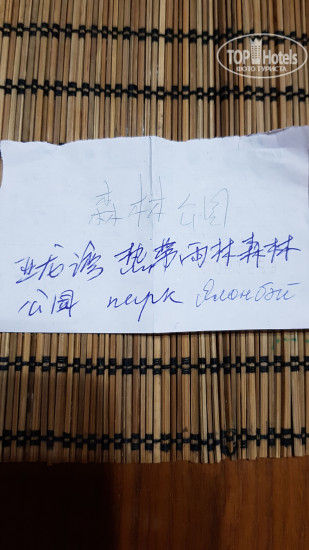 TOP Hotels
ФОТО ТУРИСТА
森林公园
亚龙湾 热带雨林森林
公园 парк Ялонбэй